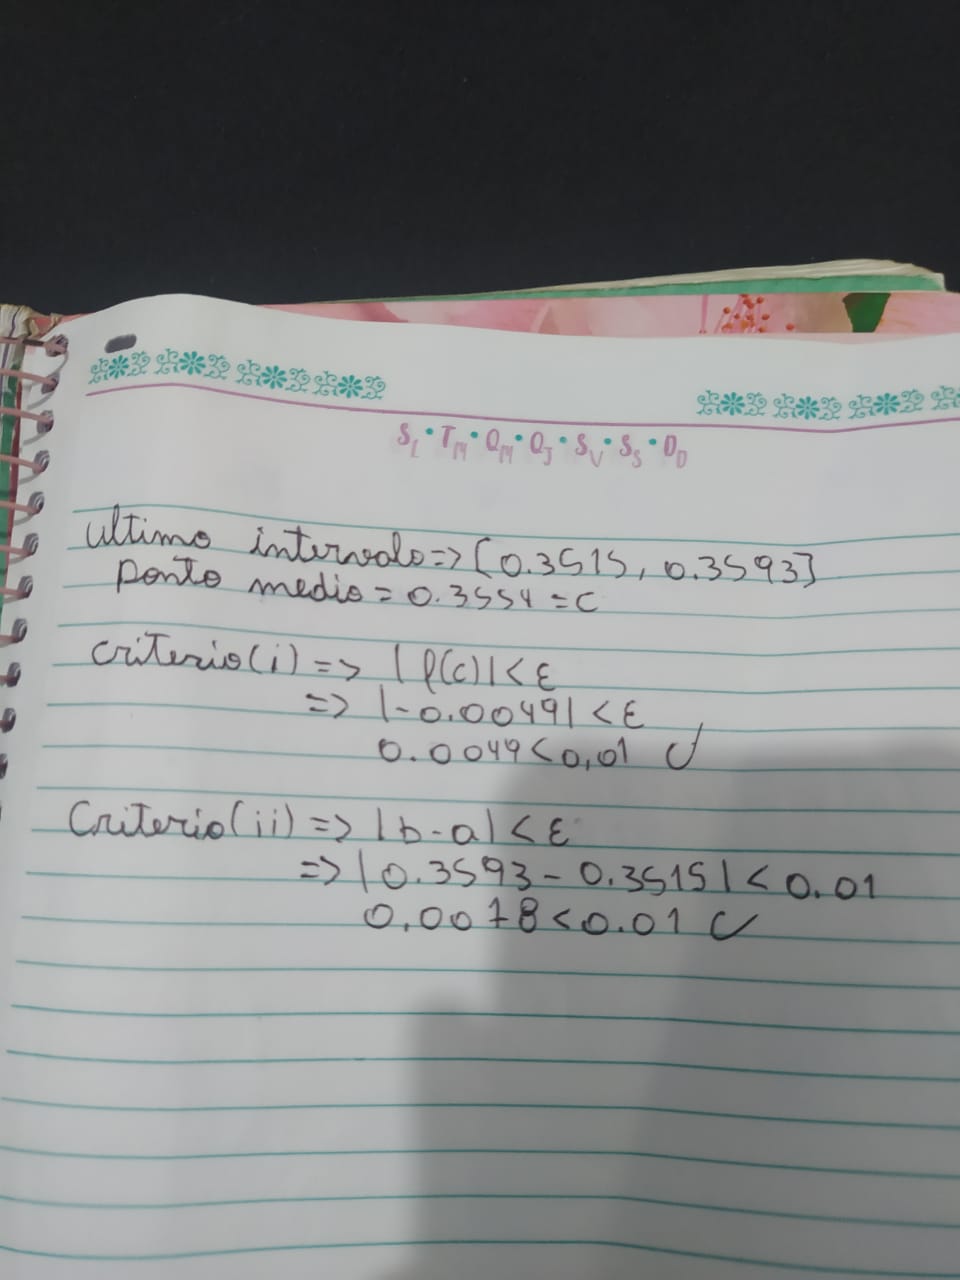 S L • T M • Q M • Q J • S V • S S • D D
ultimo intervalo => [0.3515, 0.3593]
ponto medio = 0.3554 = c
criterio (i) => |f(c)| < ε
=> |-0.0049| < ε
0.0049 < 0,01 ✓
Criterio (ii) => |b - a| < ε
=> |0.3593 - 0.3515| < 0.01
0.0078 < 0.01 ✓